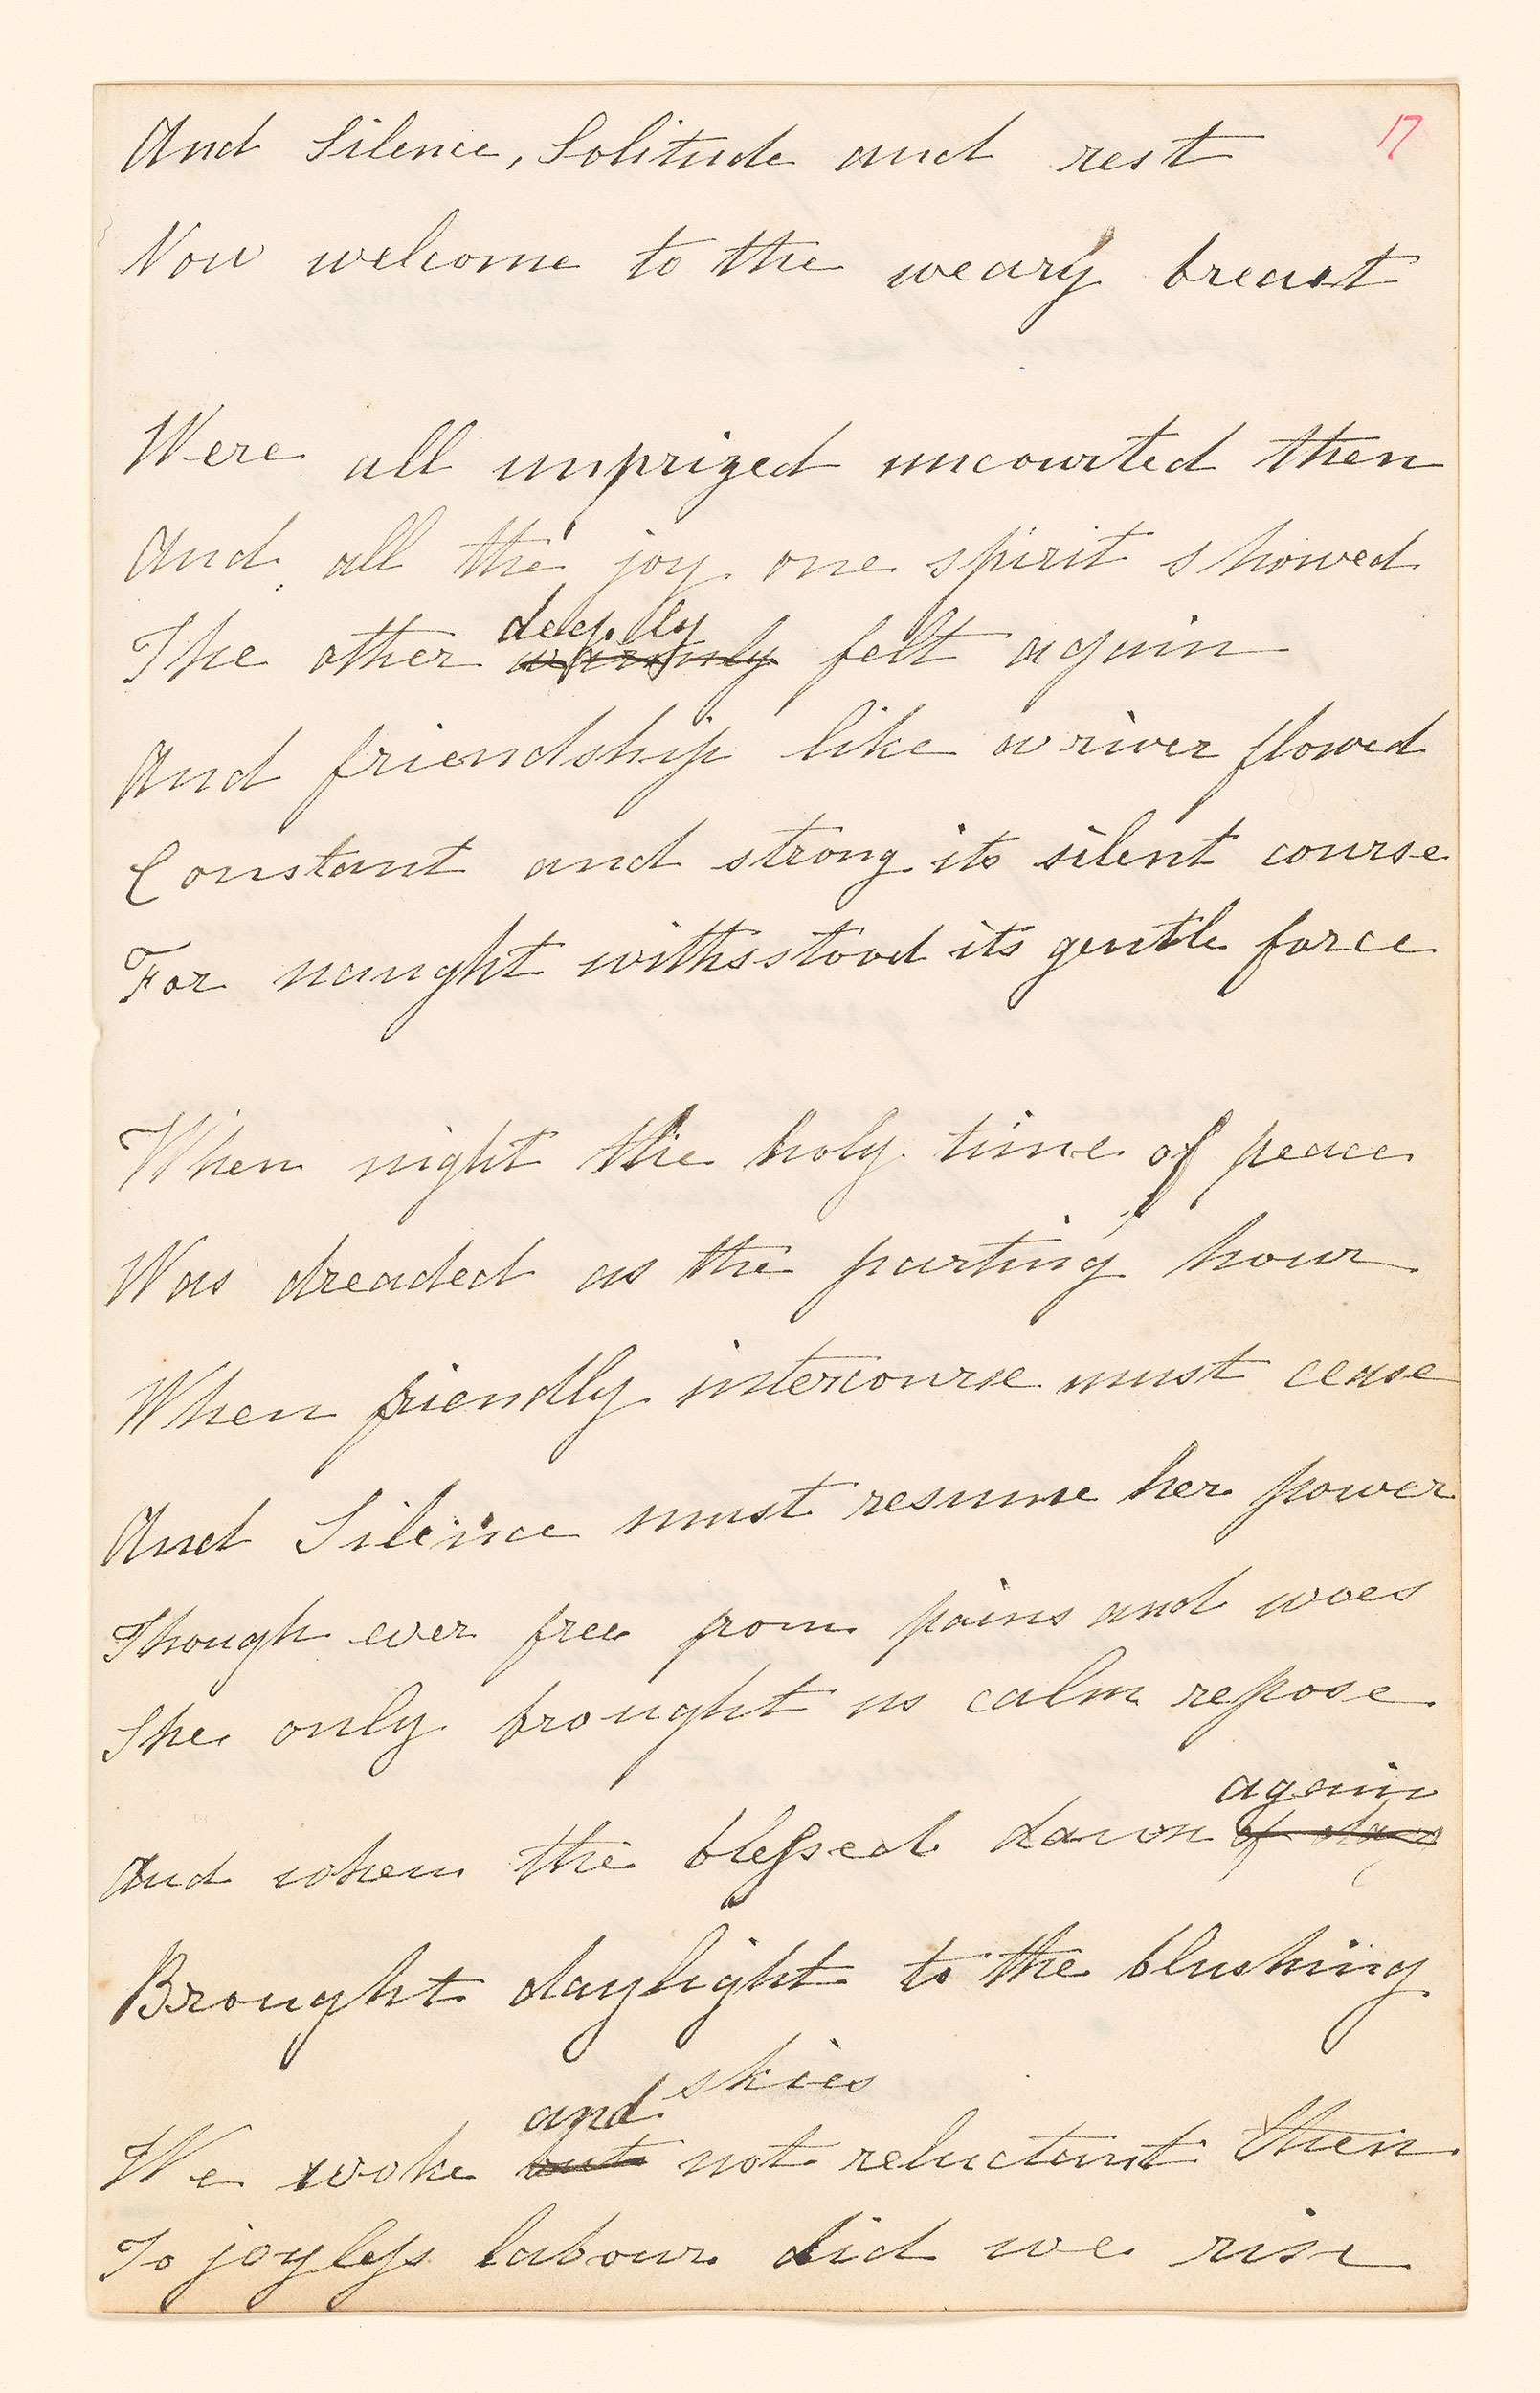 17
And Silence, Solitude and rest
Now welcome to the weary breast
Were all unprized uncourted then
And all the joy one spirit showed
deeply
The other warmly felt again
And friendship like a river flowed
Constant and strong its silent course
For naught withsstood its gentle force
When night the holy time of peace
Was dreaded as the parting hour
When friendly intercourse must cease
And Silence must resume her power
Though ever free from pains and woes
She only brought us calm repose
again
And when the blessed dawn of day
Brought daylight to the blushing
skies
and
We woke but not reluctant then
To joyless labour did we rise